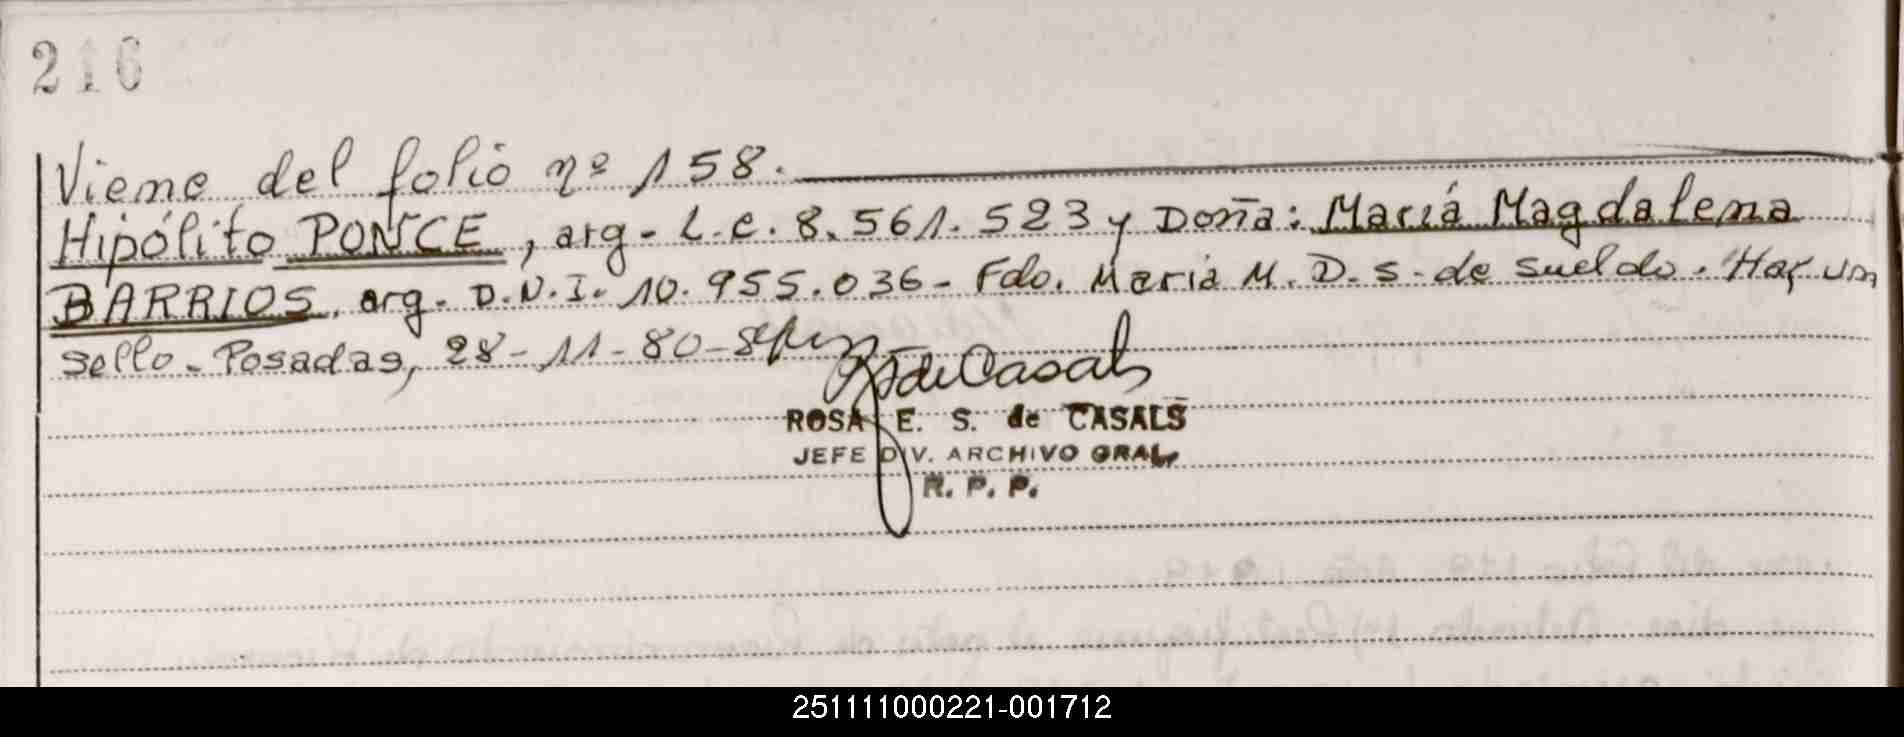 216
Viene del folio nº 158.
Hipólito PONCE, arg- L.E. 8.561.523 y Doña: María Magdalena
BARRIOS, arg. D.N.I. 10.955.036- Fdo. María M. D. S. de Sueldo. Hay un
Sello- Posadas, 28-11-80-
de Casals
ROSA E. S. de CASALS
JEFE DIV. ARCHIVO GRAL.
R. P. P.
251111000221-001712